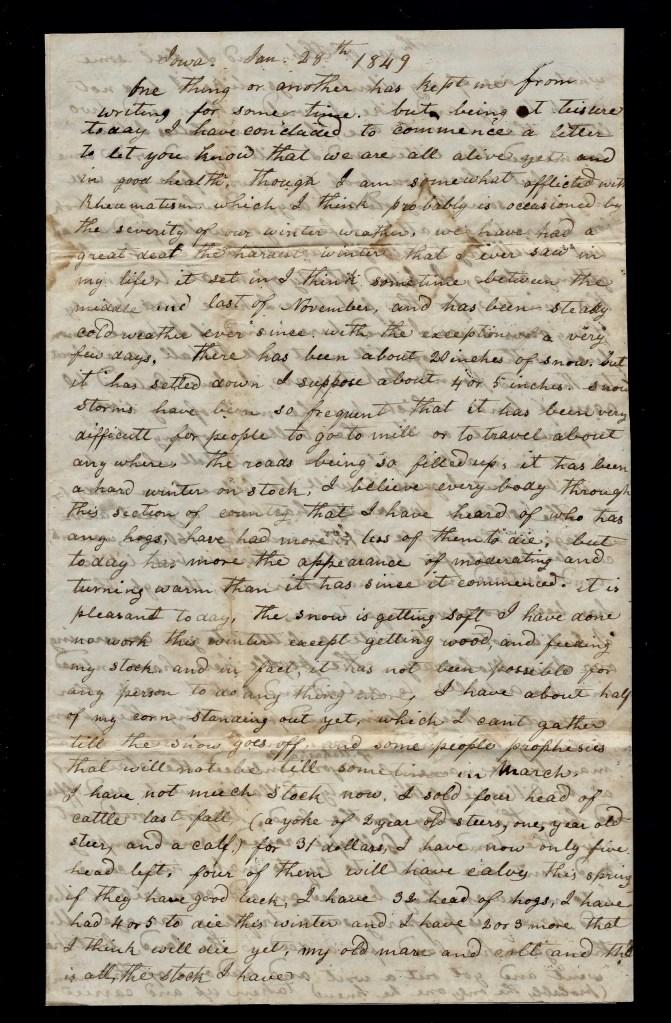 Iowa. Jan. 28th 1849
One thing or another has kept me from
writing for some time. but being at leisure
today I have concluded to commence a letter
to let you know that we are all alive yet and
in good health, though I am somewhat afflicted with
Rheumatism. which I think probably is occasioned by
the severity of our winter weather. we have had a
great deal the hardest winter that I ever saw in
my life, it set in I think sometime between the
middle and last of November, and has been steady
cold weather ever since. with the exception a very
few days. there has been about 20 inches of snow. but
it has setled down I suppose about 4 or 5 inches. snow
storms have been so frequent that it has been very
difficult for people to go to mill or to travel about
any where, the roads being so filled up. it has been
a hard winter on stock, I believe every body through
this section of country that I have heard of who has
any hogs, have had more or less of them to die. but
today has more the appearance of moderating and
turning warm than it has since it commenced. it is
pleasant today, the snow is getting soft I have done
no work this winter except getting wood, and feeding
my stock. and in fact, it has not been possible for
any person to do any thing more, I have about half
of my corn standing out yet, which I cant gather
till the snow goes off, and some people prophesies
that will not be till some time in March.
I have not much stock now. I sold four head of
cattle last fall (a yoke of 2 year old steers, one, year old
steer, and a calf.) for 31 dollars, I have now only five
head left. four of them will have calvs this spring
if they have good luck, I have 32 head of hogs, I have
had 4 or 5 to die this winter and I have 2 or 3 more that
I think will die yet, my old mare and colt and this
is all, the stock I have